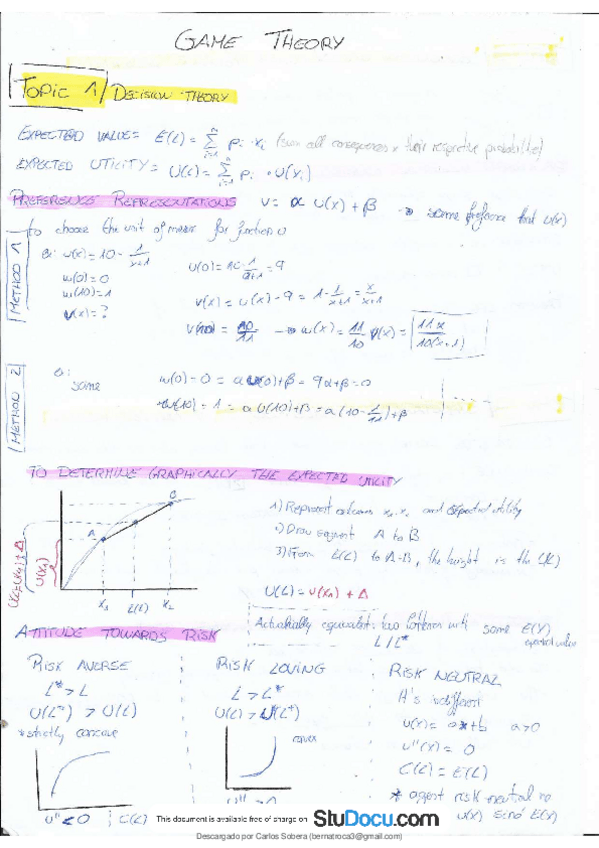 GAME THEORY
Topic 1 / DECISION THEORY
EXPECTED VALUE = E(L) = Σ pi · xi (sum all consequences x their respective probabilities)
EXPECTED UTILITY = U(L) = Σ pi · U(xi)
PREFERENCE REPRESENTATIONS V = α U(x) + β → same preference that U(x)
to choose the unit of measure for function U
METHOD 1
u(x) = 10 - 1/(x+1)
w(0) = 0
w(10) = 1
v(x) = ?
U(0) = 10 - 1/(0+1) = 9
v(x) = u(x) - 9 = 1 - 1/(x+1) = x/(x+1)
v(10) = 10/11 → w(x) = 11/10 v(x) = 11x/10(x+1)
METHOD 2
same
w(0) = 0 = αU(0) + β = 9α + β = 0
w(10) = 1 = α U(10) + β = α(10 - 1/11) + β
TO DETERMINE GRAPHICALLY THE EXPECTED UTILITY
1) Represent outcomes x1, x2 and expected utility
2) Draw segment A to B
3) From E(L) to A-B, the height is the U(L)
U(L) = U(x1) + Δ
A
B
U(x1)
X1 E(L) X2
Actuarially equivalent: two lotteries with same E(X)
expected value
L / L*
ATTITUDE TOWARDS RISK
RISK AVERSE
L* > L
U(L*) > U(L)
* strictly concave
u'' < 0
C(L)
RISK LOVING
L > L*
U(L) > U(L*)
convex
RISK NEUTRAL
It's indifferent
U(x) = ax + b a>0
u''(x) = 0
C(L) = E(L)
* agent risk neutral no
u(x) sino E(x)
This document is available free of charge on StuDocu.com
Descargado por Carlos Sobera (bernatroca3@gmail.com)